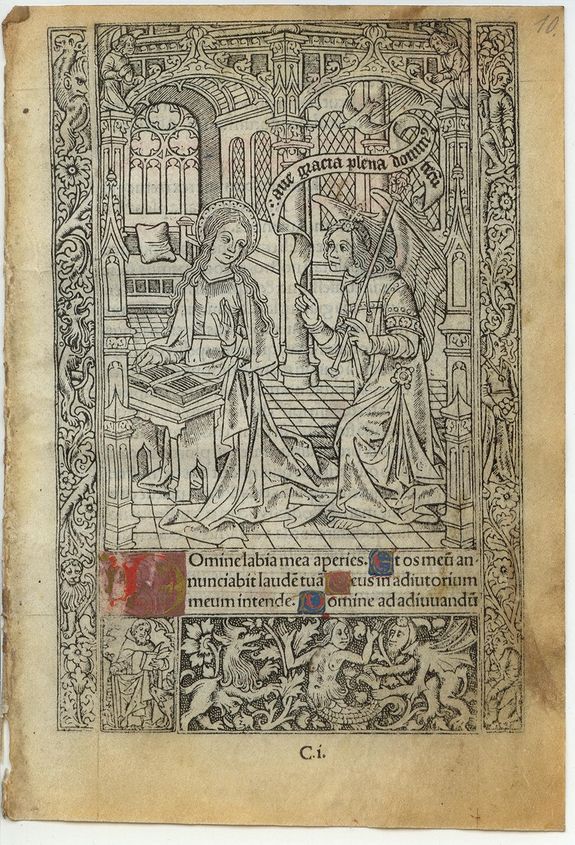 10.
aue gracia plena dominꝰ tecū
Domine labia mea aperies. Et os meū an
nunciabit laudē tuā Deus in adiutorium
meum intende. Domine ad adiuuandū
C.i.